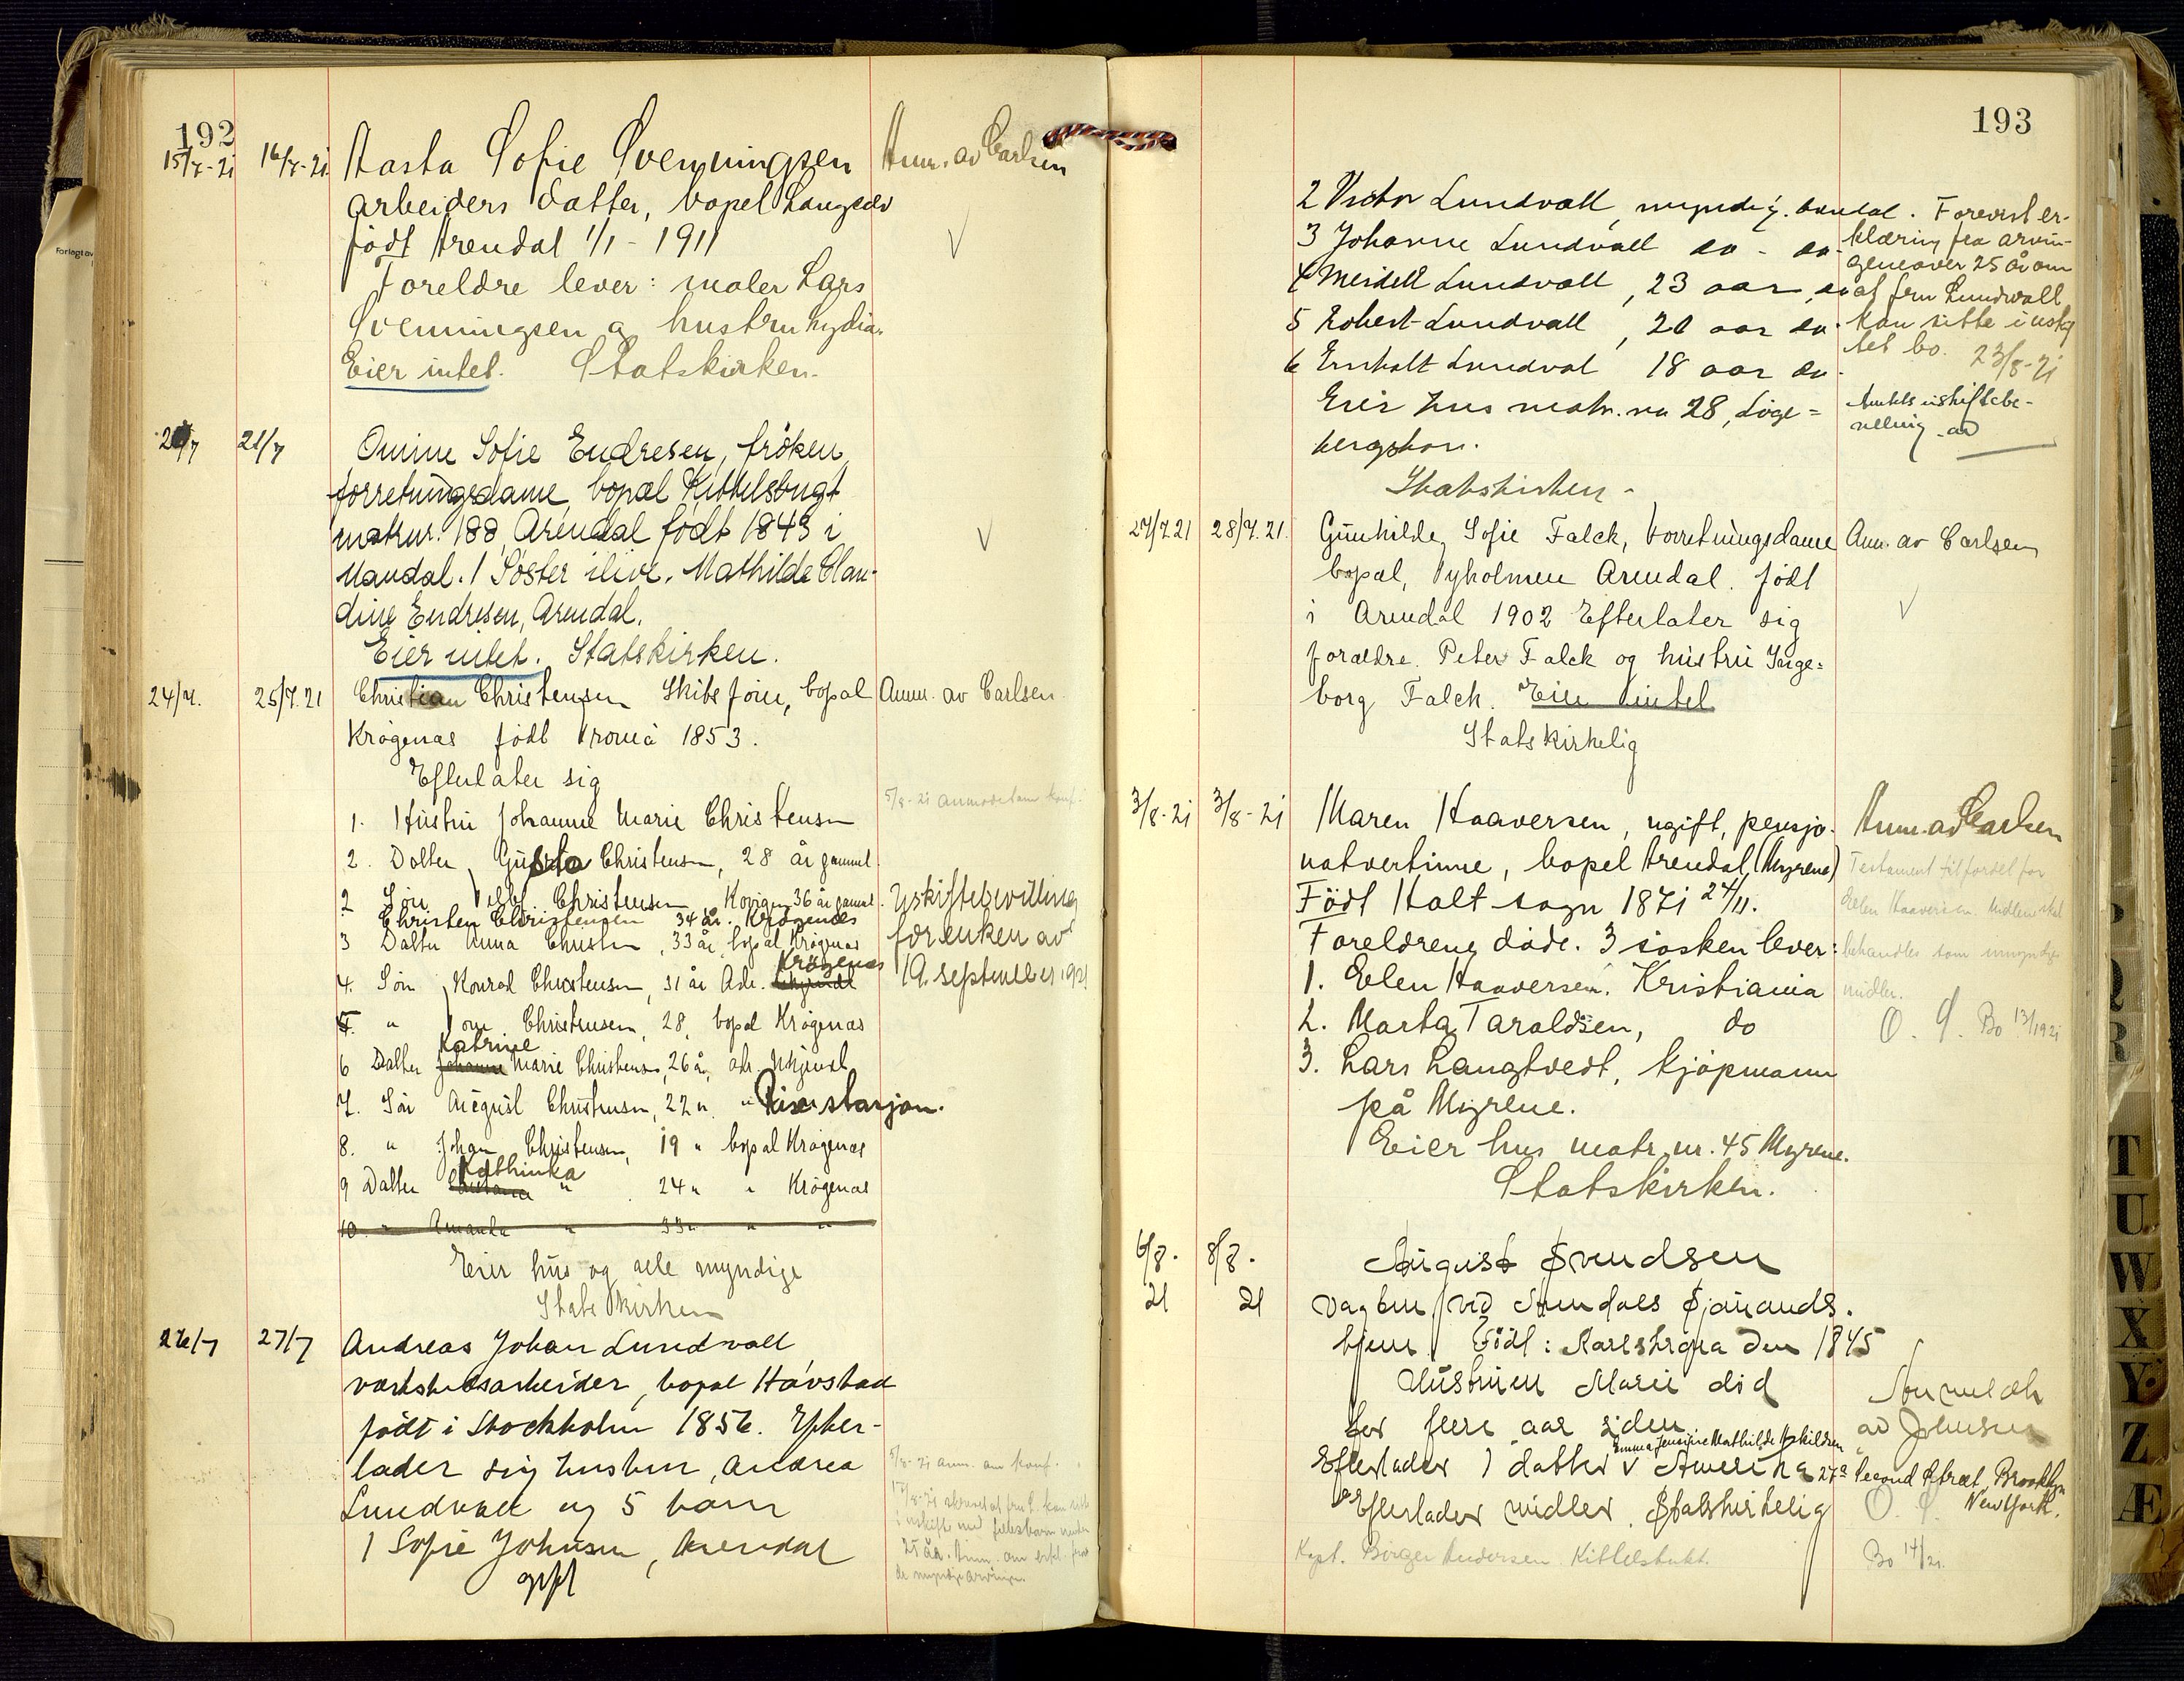 192
15/7-21 16/7-21 Aasta Sofie Svenningsen Anm. av Carlsen
arbeiders datter, bopel Langsæ
født Arendal 1/1 - 1911
Foreldre lever: maler Lars
Svenningsen og hustru Lydia.
Eier intet. Statskirken.
20/7 21/7 Omine Sofie Endresen, frøken,
forretningsdame, bopæl Kittelsbugt
matrnr. 188, Arendal født 1843 i
Mandal. 1 Søster ilive, Mathilde Clau-
dine Endresen, Arendal.
Eier intet. Statskirken.
24/7. 25/7.21 Christian Christensen Skibstøm, bopæl Anm. av Carlsen
Krøgenæs født Tromø 1853.
Efterlater sig
5/8-21 anmodet om konf.
1. Hustru Johanne Marie Christensen
2. Datter Gusta Christensen, 28 år gammel
2 Søn Christensen 36 år gammel. Uskiftebevilling
Christen Christensen 34 år. Krøgenes
3 Datter Anna Christen , 33 år, bopæl Krøgenæs for enken av
Krøgenæs
4. Søn Konrad Christensen, 31 år Adr. ukjendt 19. september 1921
5. " Tom Christensen, 28, bopæl Krøgenæs
Katrine
6 Datter Johanne Marie Christensen, 26 år, adr. ukjendt
7. Søn August Christensen, 22 " " Rise stasjon.
8. " Johan Christensen, 19 " bopæl Krøgenæs
Kathinka
9 Datter " 24 " " Krøgenæs
10 " Amanda " 33 " " "
Eier hus og alle myndige
Statskirken
26/7 27/7 Andreas Johan Lundvall
verkstedsarbeider, bopæl Håvstad
født i Stockholm 1856. Efter-
lader sig hustru, Andrea
Lundvall og 5 barn
1 Sofie Johnsen, Arendal
gift
5/8-21 anm. om konf.
193
2 Victor Lundvall, myndig. Arendal.
3 Johanne Lundvall do - do
4 Meidell Lundvall, 23 aar, do
5 Robert Lundvall, 20 aar do
6 Lundval 18 aar do
Eier hus matr. no 28, Løge=
bergskar.
Statskirken -
Forevist er-
klæring fra arvin-
gene over 25 år om
at fru Lundwall
kan sitte i uskif
tet bo. 23/8-21
Amtets uskiftebe-
villing av
27/7.21 28/7.21. Gunhilde Sofie Falck, Forretningsdame Anm. av Carlsen
bopæl, Tyholmen Arendal. født
i Arendal 1902 Efterlater sig
forældre. Peter Falck og hustru Inge=
borg Falck. Eier intet
Statskirkelig
3/8-21 3/8-21 Maren Haaversen, ugift, pensjo- Anm. av Carlsen
natvertinne, bopel Arendal (Myrene)
Født Holt sogn 1871 24/11.
Foreldrene døde. 3 søsken lever:
1. Elen Haaversen. Kristiania
2. Marta Taraldsen, do
3. Lars Langtvedt, kjøpmann
på Myrene.
Eier hus matr. nr. 45 Myrene.
Statskirken.
Testament til fordel for
Elen Haaversen. Midlene skal
behandles som umyndiges
midler.
O. S. Bo 13/1921
6/8. 8/8. August Svendsen
21 21 vagtm. ved Arendals Sjømands-
hjem. Født: Karlskrona den 1845
Hustruen Marie død
for flere aar siden
Anmeldt
av Johnsen
Emma Jensine Mathilde
Efterlader 1 datter i Amerika 272 Second Street, Brooklyn
New York.
Efterlader midler. Statskirkelig O. S.
Kapt. Birger Andersen Kittelsbukt. Bo 14/21.